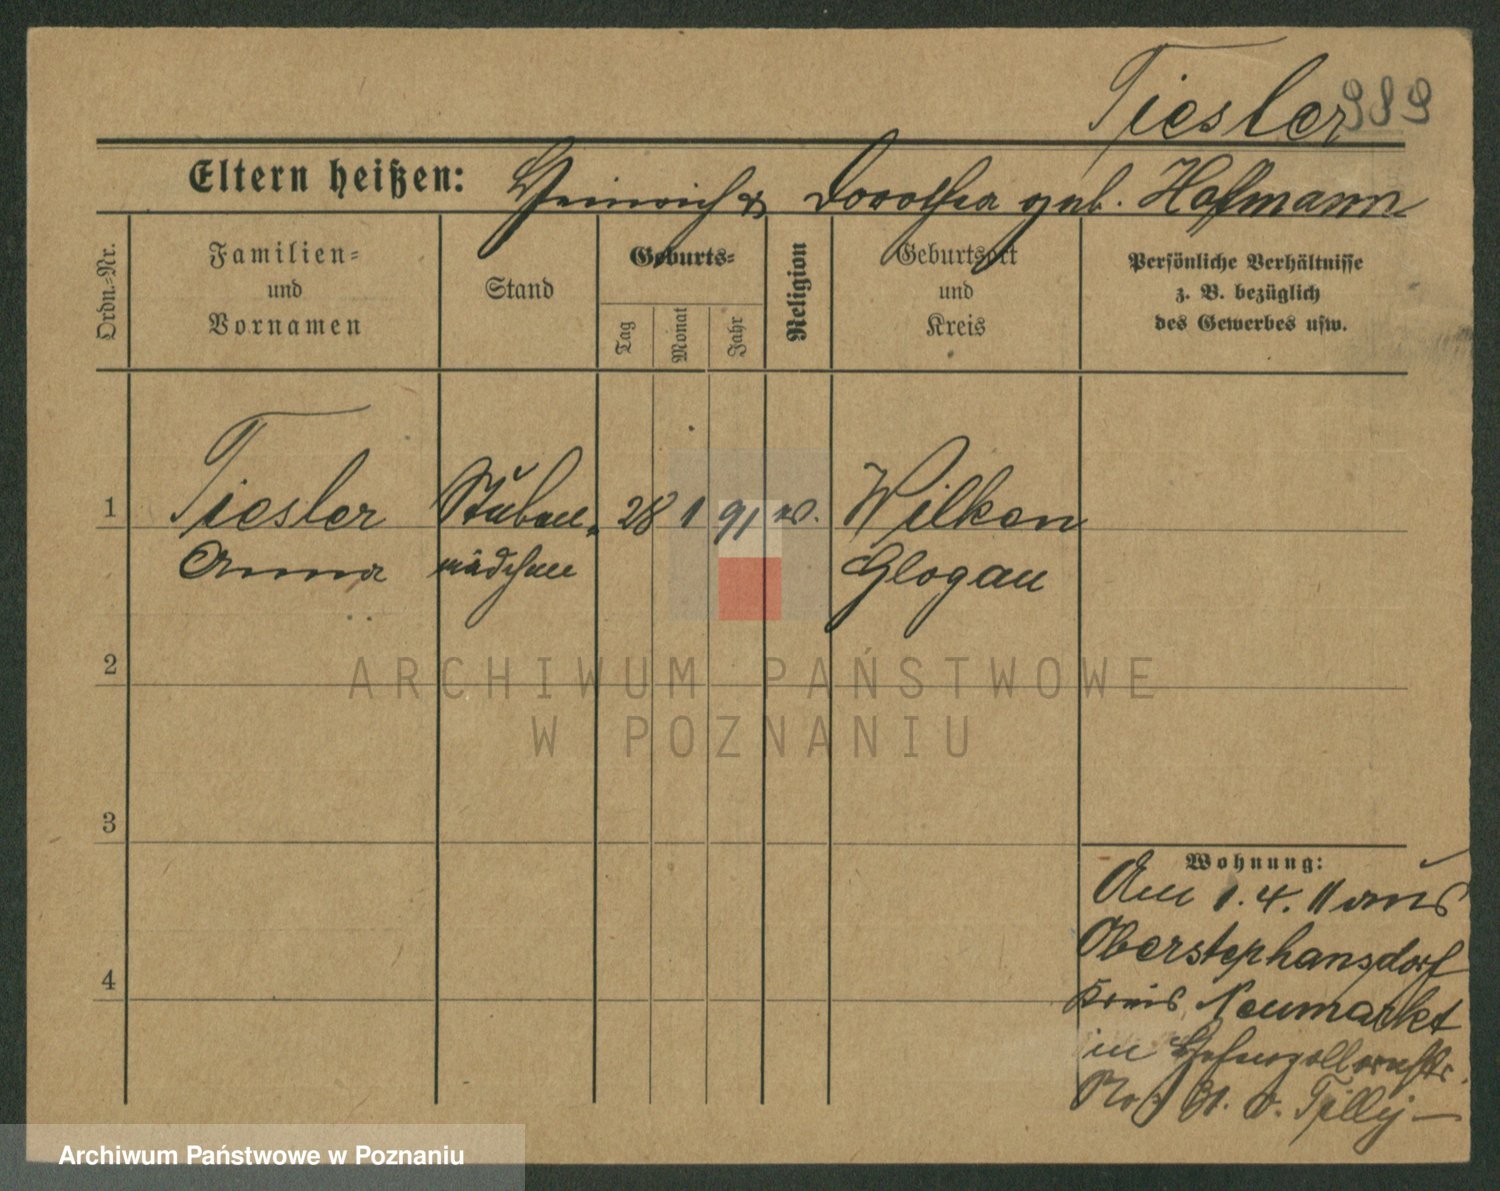 Tiesler 989
Eltern heißen: Heinrich & Dorothea geb. Hofmann
Ordn.-Nr.
Familien-
und
Vornamen
Stand
Geburts-
Tag
Monat
Jahr
Religion
Geburtsort
und
Kreis
Persönliche Verhältnisse
z. B. bezüglich
des Gewerbes usw.
1 Tiesler Stuben- 28 1 91 ev. Wilkau
Anna mädchen Glogau
2
3
4
Wohnung:
Am 1. 4. 11 aus
Oberstephansdorf
Kreis Neumarkt
in Hohenzollernstr.
No. b. v. Tilly
ARCHIWUM PAŃSTWOWE
W POZNANIU
Archiwum Państwowe w Poznaniu